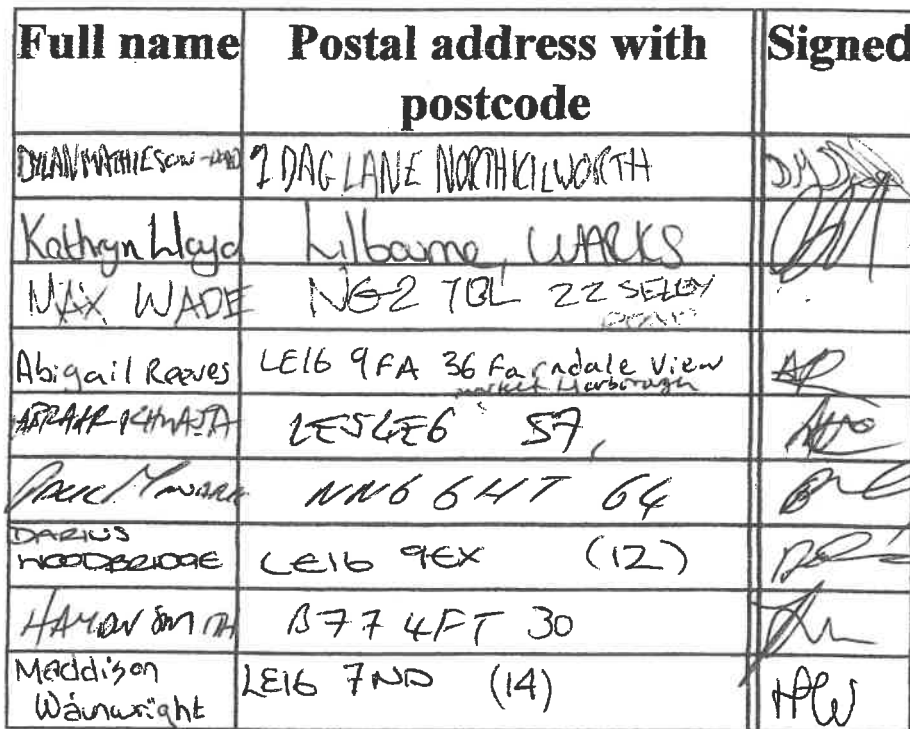 Full name Postal address with postcode Signed
DYLAN MATHIESON 2 DAG LANE NORTH KILWORTH
Kathryn Lloyd Lilbourne, WARKS
MAX WADE NG2 7BL 22 SELBY
ROAD
Abigail Reeves LE16 9FA 36 Farndale View AR
market Harborough
KHWAJA LE5 57,
NN6 6HT 64
DARIUS
WOODBRIDGE LE16 9EX (12)
SMITH B77 4FT 30
Maddison
Wainwright LE16 7ND (14) MW